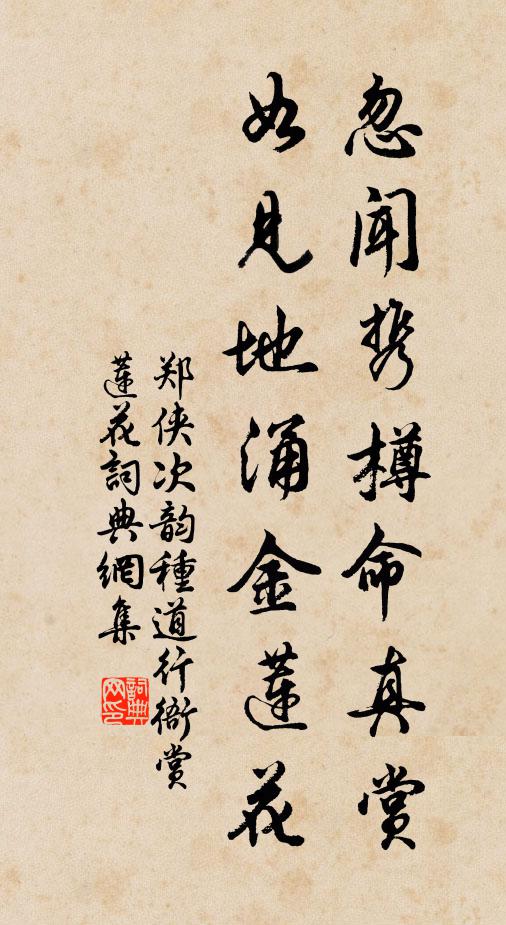 忽闻携樽命真赏
如见地涌金莲花
郑侠次韵種道行衙赏
莲花詞典網集
詞典
网印